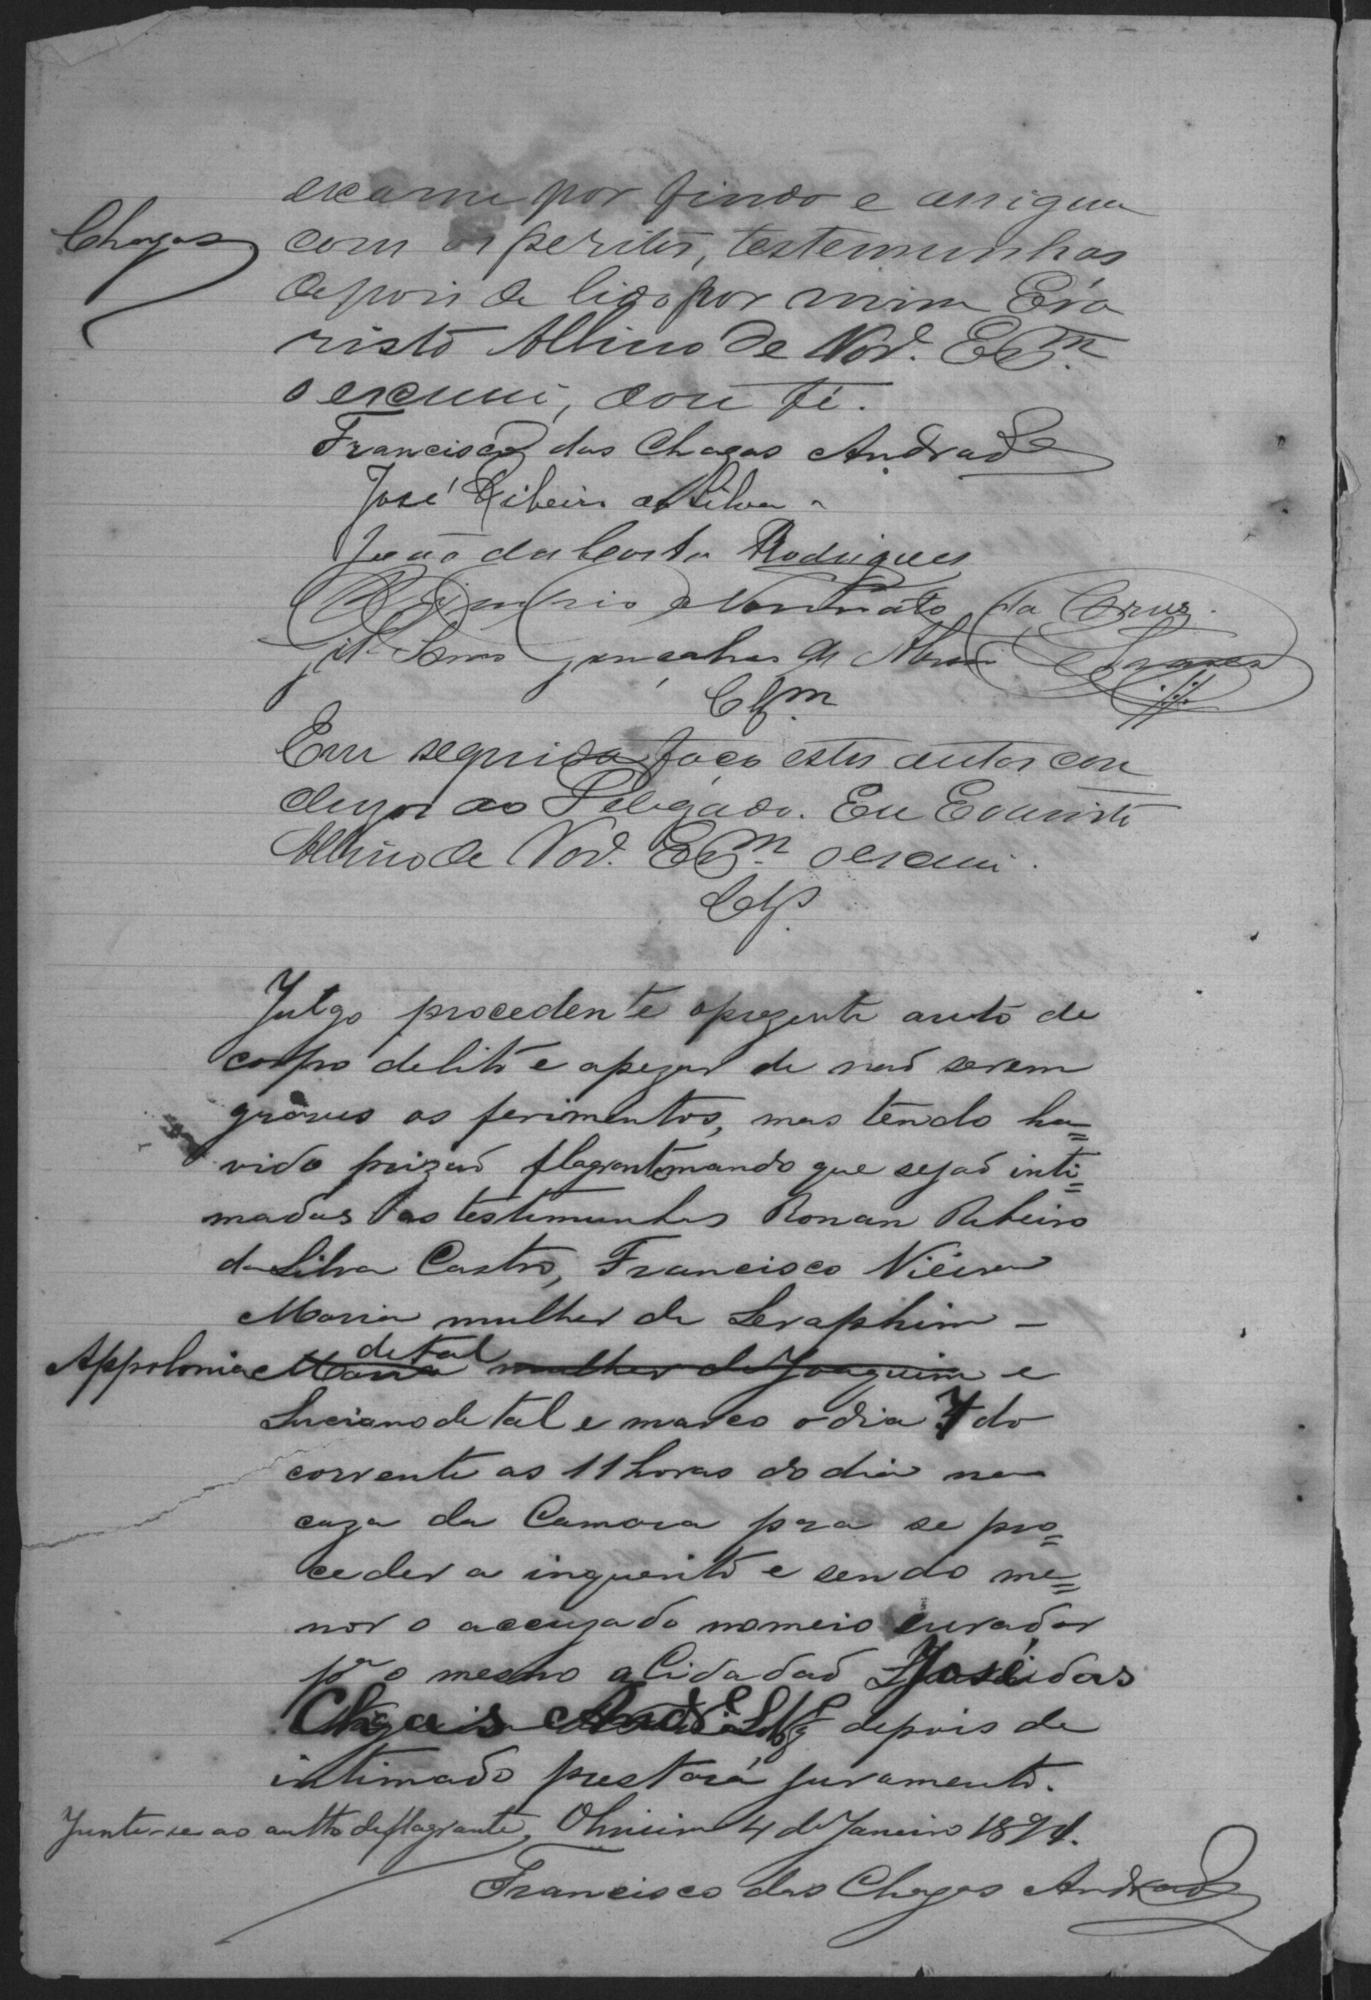 exame por findo e assigna
Chagas
com os peritos, testemunhas
depois de lido por mim Eva
risto Albino de Nor.ª Esc.m
o escrevi, dou fé.
Francisco das Chagas Andrade
José Ribeiro da Silva
João da Costa Rodrigues
Nonnato da Cruz
Gil Gonçalves de Tavares
Clsm
Em seguida faço estes autos con
clusos ao Delegado. Eu Evaristo
Albino de Nor.ª Esc.m o escrevi.
Cls.
Julgo procedente o prezente auto de
corpo delito e apezar de naõ serem
graves os ferimentos, mas tendo ha=
vido prizaõ flagrante mando que sejaõ inti=
madas as testimunhas Ronan Ribeiro
da Silva Castro, Francisco Vieira
Maria mulher de Seraphim -
Appolonia de tal Maria mulher de Joaquim e
Luciano de tal e marco o dia 7 do
corrente as 11 horas do dia na
caza da Camara para se pro=
ceder a inquerito e sendo me=
nor o accuzado nomeio curador
pª o mesmo o Cidadaõ José das
Chagas And.e depois de
intimado prestará juramento.
Junte-se ao autto de flagrante, 4 de Janeiro 1891.
Francisco das Chagas Andrade